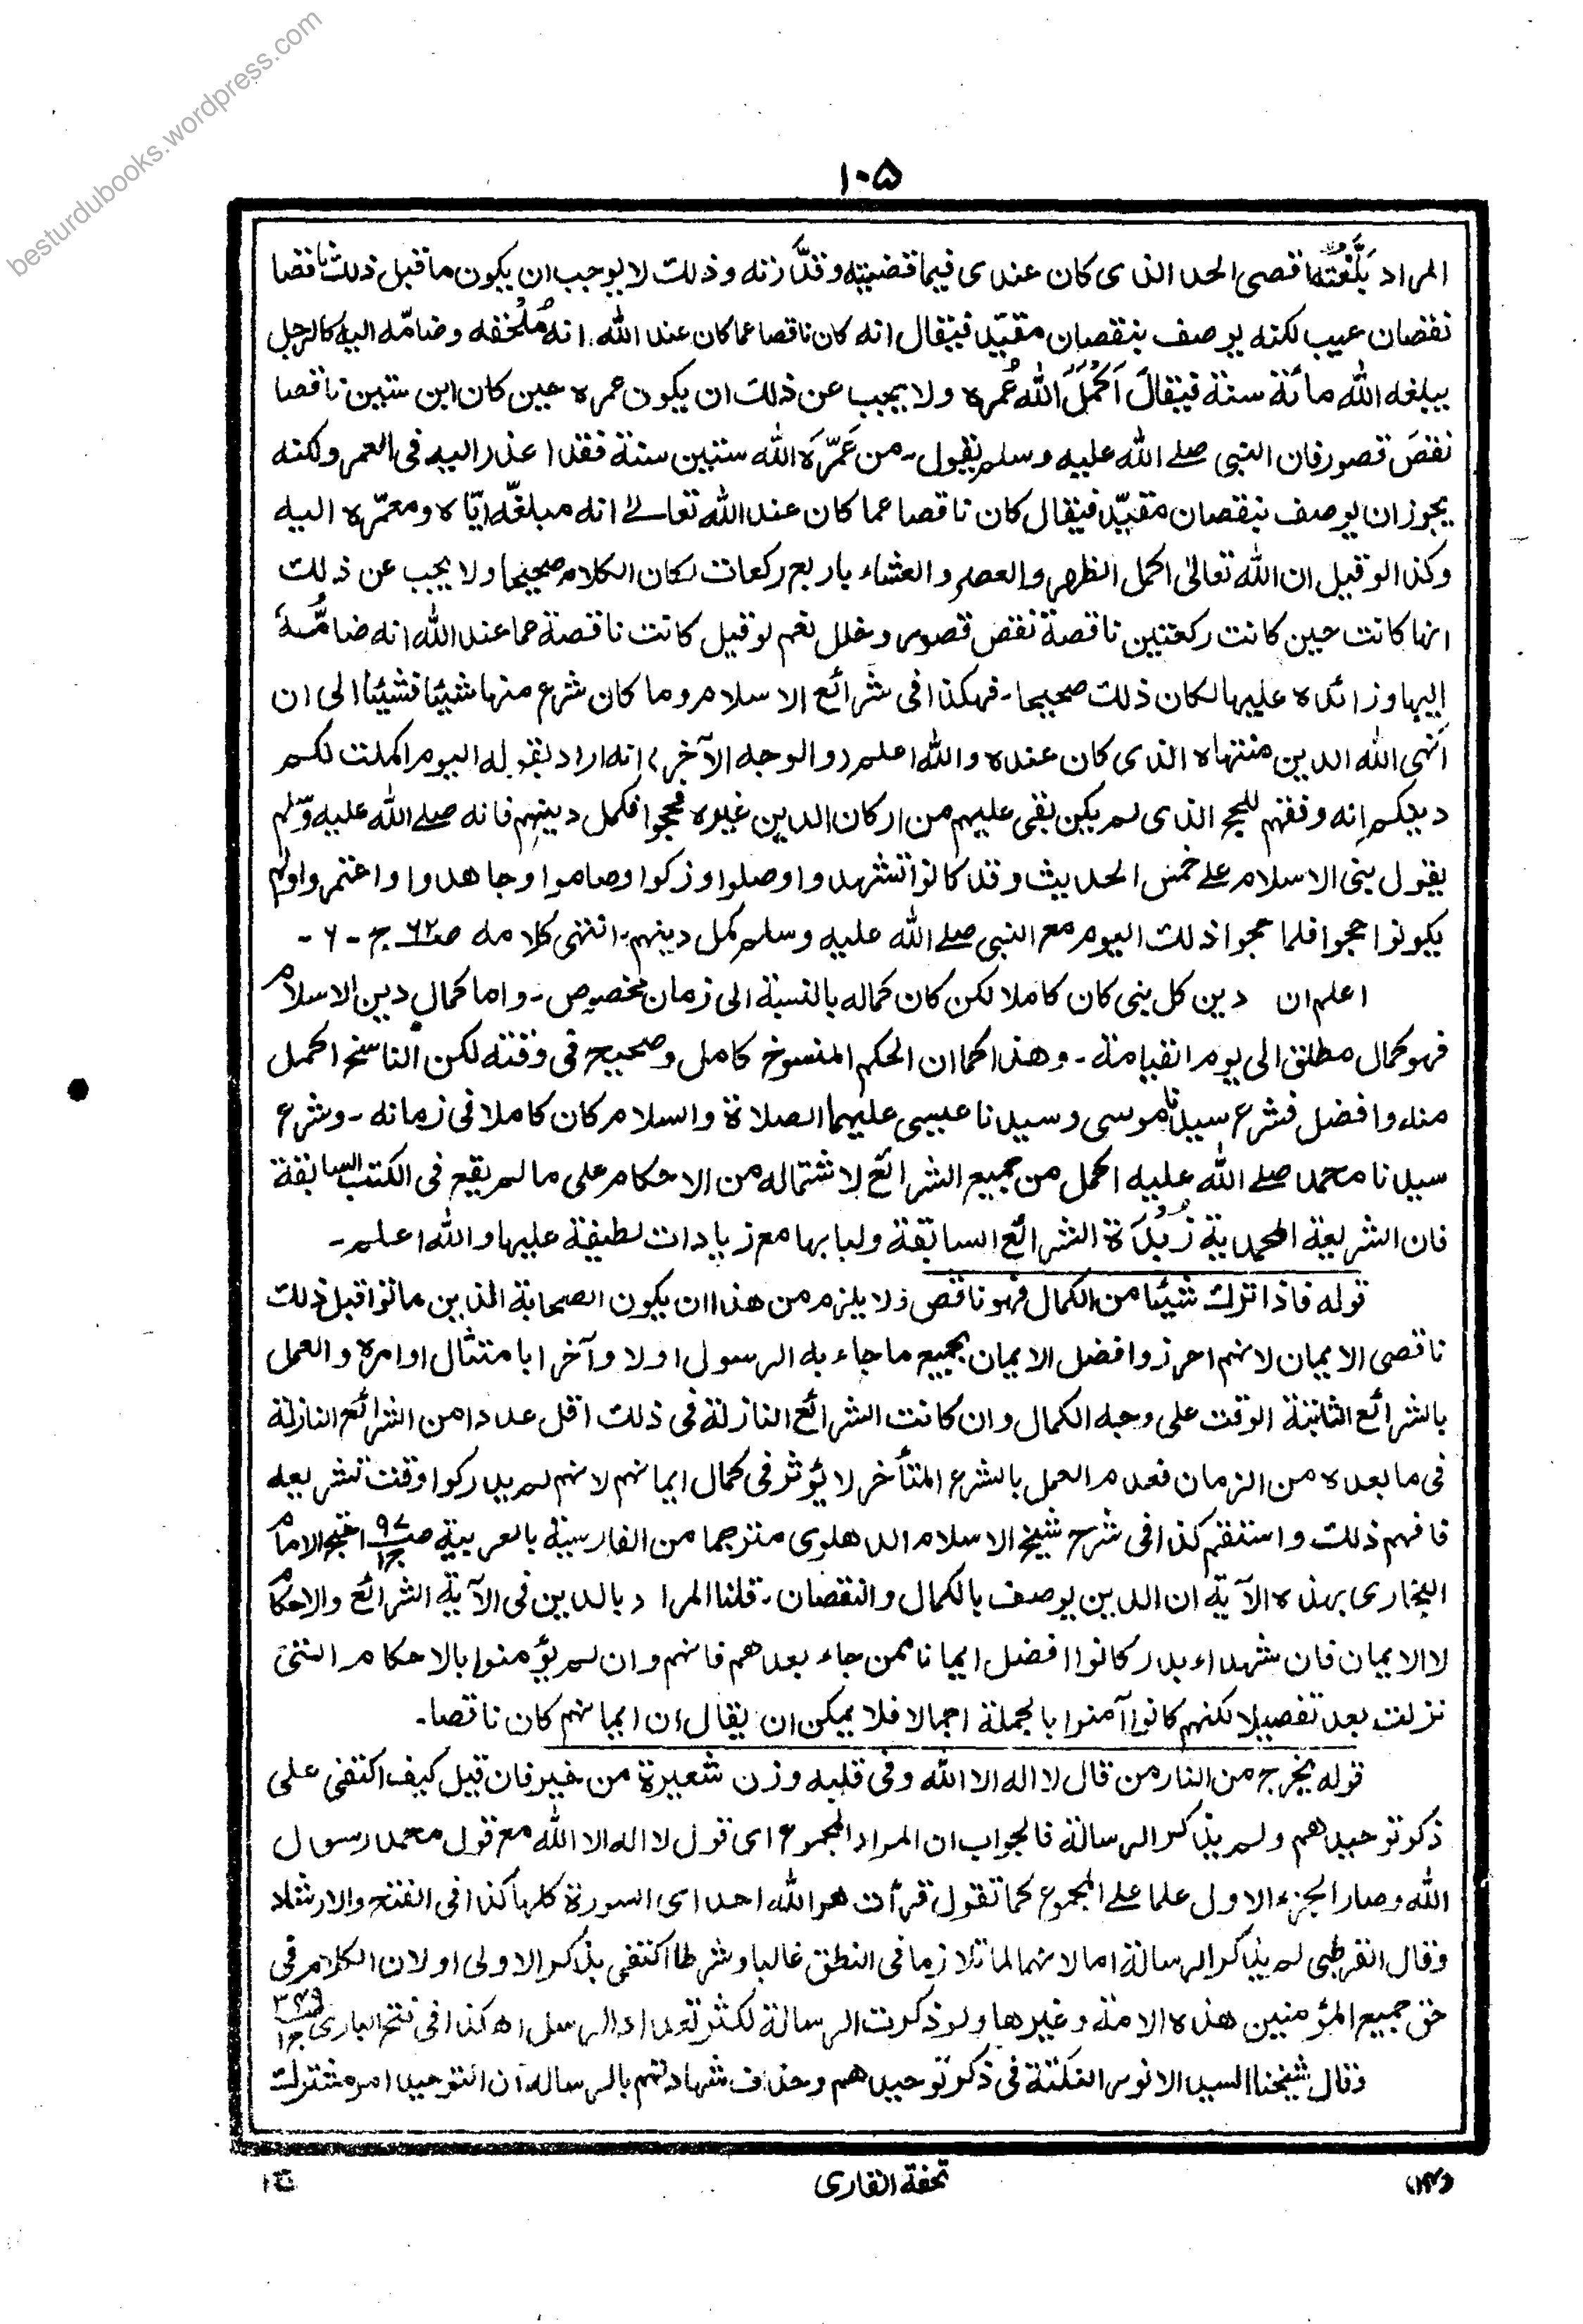 besturdubooks.wordpress.com
١٠٥
المراد بَلَّغْتُه اقصى الحد الذى كان عندى فيما قضيته وقدَّرته وذلك لا يوجب ان يكون ما قبل ذلك ناقصا
نقصان عيب لكنه يوصف بنقصان مقيّد فيقال انه كان ناقصا عما كان عند الله انه مُلْحقه وضامّه اليه كالرجل
يبلغه الله مائة سنة فيقال اَكْمَلَ الله عُمره ولا يجب عن ذلك ان يكون عمره حين كان ابن ستين ناقصا
نقصَ قصور فان النبى صلے الله عليه وسلم يقول۔ من عَمَّرَه الله ستين سنة فقد اعذر اليه فى العمر ولكنه
يجوز ان يوصف بنقصان مقيّد فيقال كان ناقصا عما كان عند الله تعالےٰ انه مبلغّه ايّاه ومعمّره اليه
وكذا لو قيل ان الله تعالىٰ اكمل الظهر والعصر والعشاء باربع ركعات لكان الكلام صحيحا ولا يجب عن ذلك
انها كانت حين كانت ركعتين ناقصة نقص قصور وخلل نعم لو قيل كانت ناقصة عما عند الله انه ضامُّه
اليها وزائده عليها لكان ذلك صحيحا۔ فهكذا فى شرائع الاسلام وما كان شرع منها شيئا فشيئا الى ان
اَنهى الله الدين منتهاه الذى كان عنده والله اعلم (والوجه الآخر) انه اراد بقوله اليوم اكملت لكم
دينكم انه وفقهم للحج الذى لم يكن بقى عليهم من اركان الدين غيره فحجوا فكمل دينهم فانه صلے الله عليه وسّلم
يقول بنى الاسلام علے خمس الحديث وقد كانوا تشهدوا وصلوا وزكوا وصاموا وجاهدوا واعتمروا ولم
يكونوا حجوا فلما حجوا ذلك اليوم مع النبى صلے الله عليه وسلم كمل دينهم۔ انتهى كلامه صـ٦٢ ج ـ ٦ ـ
اعلم ان دين كل نبى كان كاملا لكن كان كماله بالنسبة الى زمان مخصوص۔ واما كمال دين الاسلام
فهو كمال مطلق الى يوم القيامة۔ وهذا كما ان الحكم المنسوخ كامل وصحيح فى وقته لكن الناسخ اكمل
منه وافضل فشرع سيدنا موسى وسيدنا عيسى عليهما الصلاة والسلام كان كاملا فى زمانه۔ وشرع
سيدنا محمد صلے الله عليه اكمل من جميع الشرائع لاشتماله من الاحكام على ما لم يقع فى الكتب السابقة
فان الشريعة المحمدية زُبْدَة الشرائع السابقة ولبابها مع زيادات لطيفة عليها والله اعلم۔
قوله فاذا ترك شيئا من الكمال فهو ناقص ولا يلزم من هذا ان يكون الصحابة الذين ماتوا قبل ذلك
ناقصى الايمان لانهم احرزوا افضل الايمان بجميع ما جاء به الرسول اولا وآخرا بامتثال اوامره والعمل
بالشرائع الثابتة الوقت على وجه الكمال وان كانت الشرائع النازلة فى ذلك اقل عددا من الشرائع النازلة
فى ما بعده من الزمان فعدم العمل بالشرع المتأخر لا يؤثر فى كمال ايمانهم لانهم لم يدركوا وقت تشريعه
فافهم ذلك واستقم كذا فى شرح شيخ الاسلام الدهلوى مترجما من الفارسية بالعربية صـ٩٧ ج١ احتج الامام
البخارى بهذه الآية ان الدين يوصف بالكمال والنقصان۔ قلنا المراد بالدين فى الآية الشرائع والاحكام
لا الايمان فان شهداء بدر كانوا افضل ايمانا ممن جاء بعدهم فانهم وان لم يؤمنوا بالاحكام التى
نزلت بعد تفصيلا لكنهم كانوا آمنوا بالجملة اجمالا فلا يمكن ان يقال ان ايمانهم كان ناقصا۔
قوله يخرج من النار من قال لا اله الا الله وفى قلبه وزن شعيرة من خير فان قيل كيف اكتفى على
ذكر توحيدهم ولم يذكر الرسالة فالجواب ان المراد المجموع اى قول لا اله الا الله مع قول محمد رسول
الله وصار الجزء الاول علما على المجموع كما تقول قرأت هو الله احد اى السورة كلها كذا فى الفتح والارشاد
وقال القرطبى لم يذكر الرسالة اما لانهما لما تلازما فى النطق غالبا وشرطا اكتفى بذكر الاولى او لان الكلام فى
حق جميع المؤمنين هذه الامة وغيرها ولو ذكرت الرسالة لكثر تعداد الرسل اھ كذا فى فتح البارى ج١
وقال شيخنا السيد الانور النكتة فى ذكر توحيدهم وحذف شهادتهم بالرسالة ان التوحيد امر مشترك
تحفة القارى